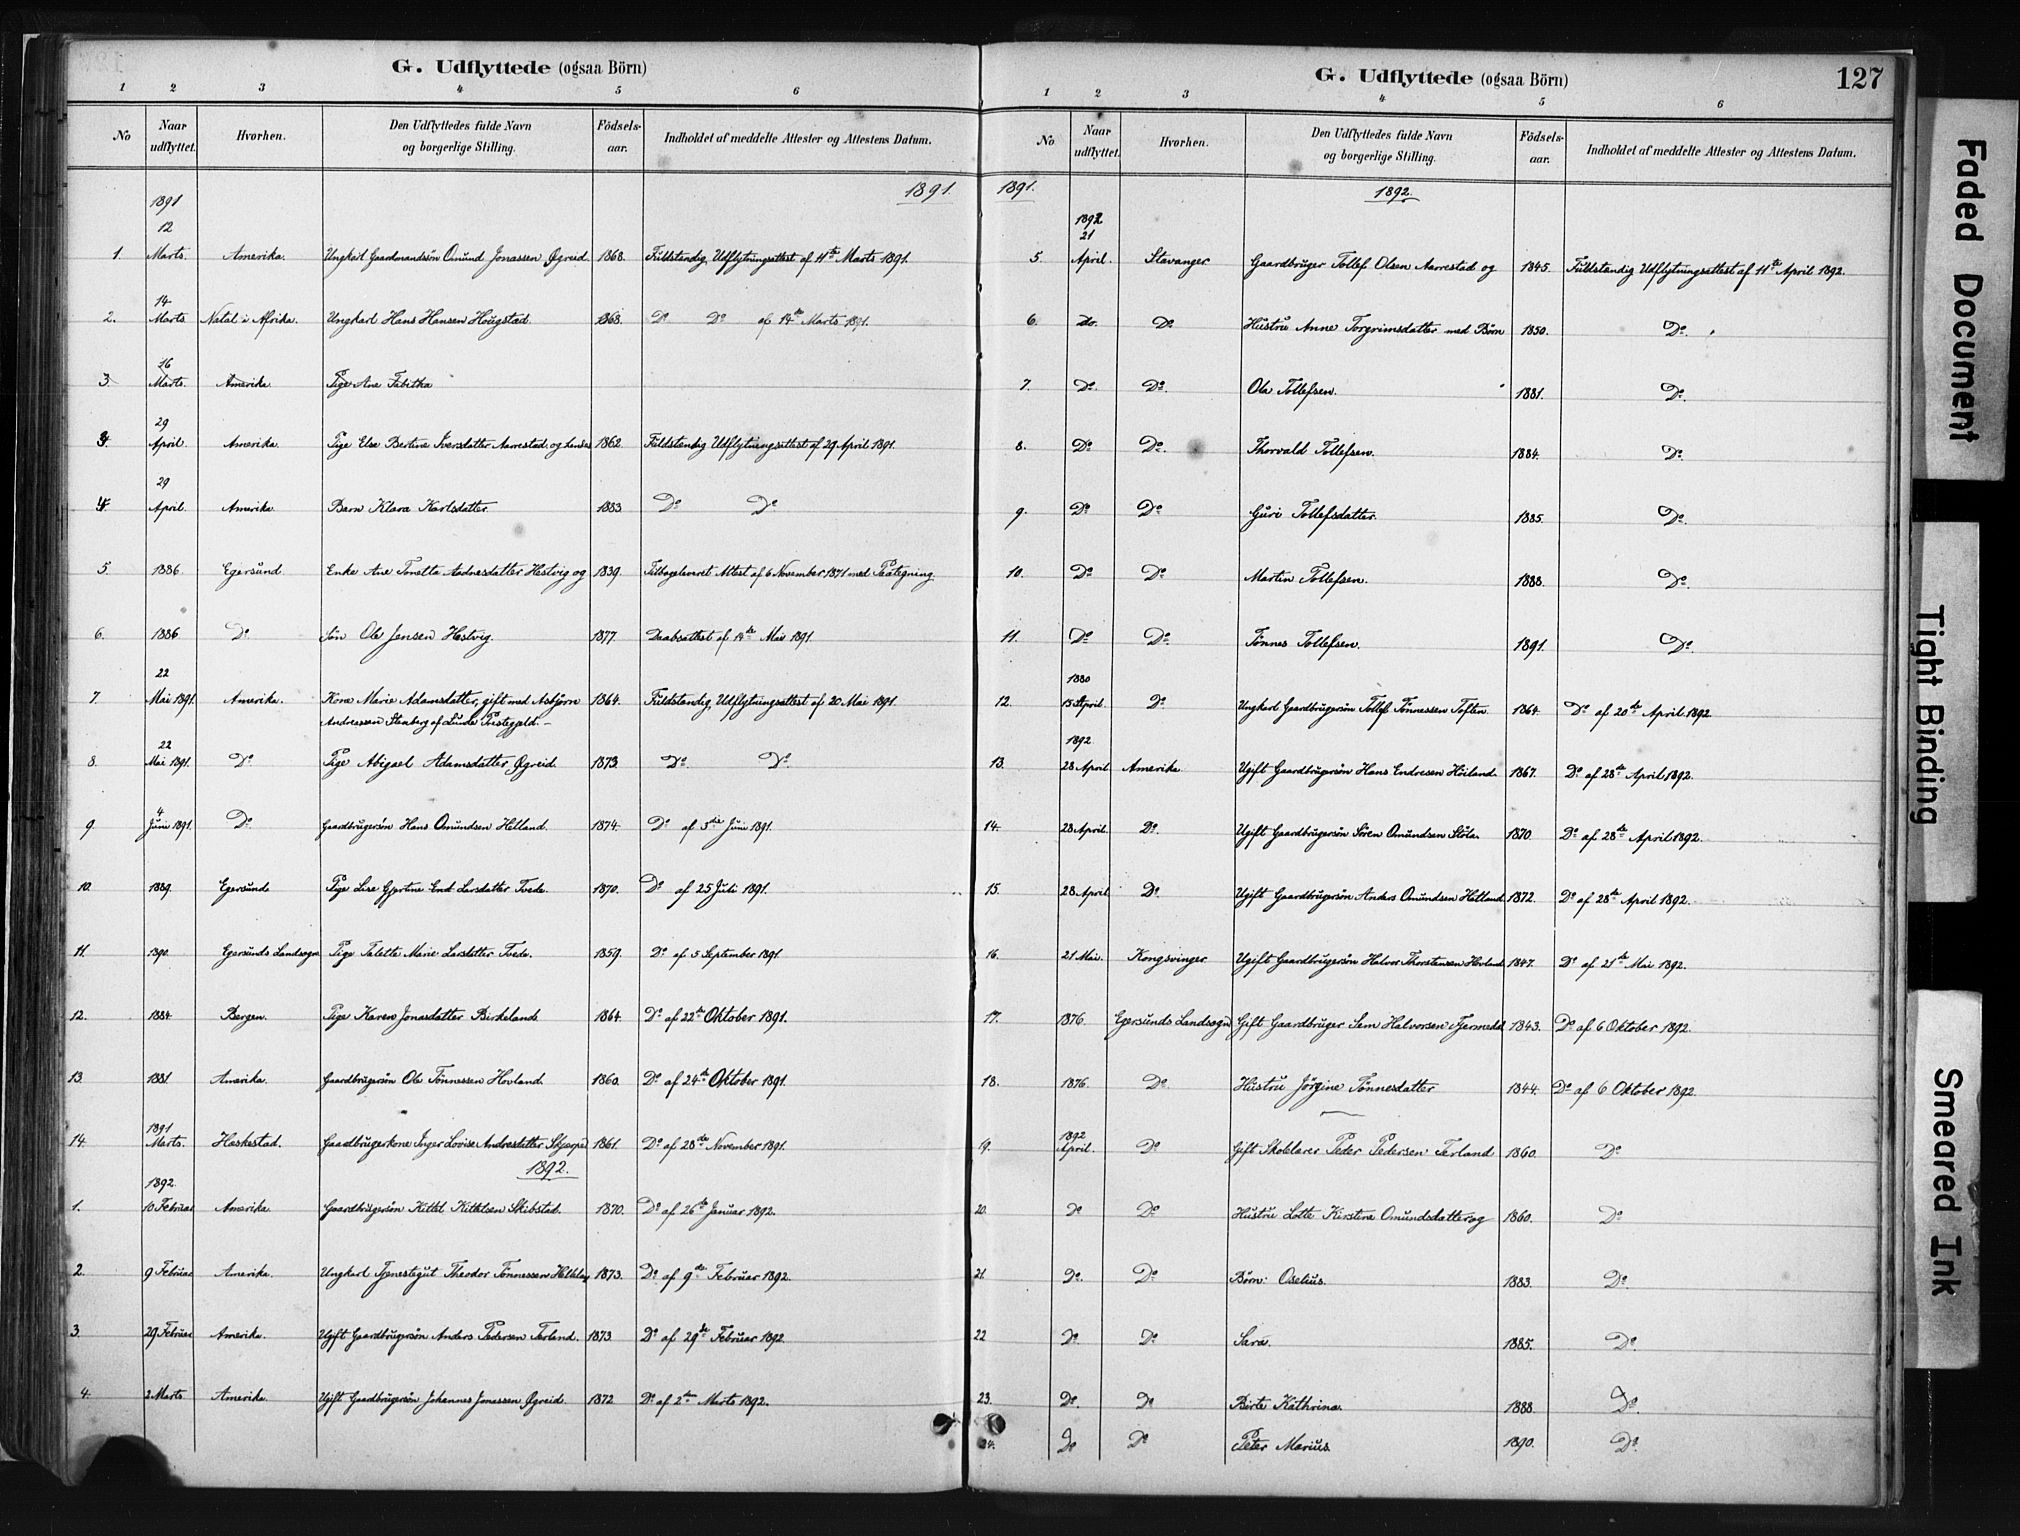 G. Udflyttede (ogsaa Börn)
1 2 3 4 5 6
No
Naar udflyttet.
Hvorhen.
Den Udflyttedes fulde Navn og borgerlige Stilling.
Födsels-aar.
Indholdet af meddelte Attester og Attestens Datum.
1891.
1891
12
1. Marts. Amerika. Ungkarl Gaardmandssön Omund Jonassen Øgreid. 1868. Fuldstændig Udflytningsattest af 11te Marts 1891.
14
2. Marts Natal i Afrika. Ungkarl Hans Hansen Hougstad. 1868. Do Do af 14de Marts 1891.
16
3 Marts. Amerika. Pige Ane Tabitha
29
3. April Amerika. Pige Else Bertine Iversdatter Aarrestad og hendes 1862. Fuldstændig Udflytningsattest af 29 April 1891.
29
4. April. Amerika. Barn Klara Karlsdatter. 1883 Do Do
5. 1886. Egersund Enke Ane Tonetta Aadnesdatter Hestvig og 1839. Tilbageleveret Attest af 6 November 1871 med Paategning.
6. 1886 Do Søn Ole Jensen Hestvig. 1877 Daabsattest af 14de Mai 1891.
22
7. Mai 1891. Amerika. Kone Marie Adamsdatter, gift med Asbjørn 1864. Fuldstændig Udflytningsattest af 20 Mai 1891.
Andreassen Stenberg af Lunde Prestegjeld.
22
8. Mai 1891. Do Pige Abigael Adamsdatter Øgreid. 1873. Do Do
4
9. Juni 1891. Do Gaardbrugersøn Hans Omundsen Helland. 1874. Do af 5te Juni 1891.
10. 1889. Egersund Pige Lise Gjertine Larsdatter Tvede. 1870. Do af 25 Juli 1891.
11. 1890. Egersunds Landsogn Pige Talette Marie Larsdatter Tvede. 1859. Do af 5 September 1891
12. 1884. Bergen. Pige Karen Jonasdatter Birkeland. 1864. Do af 22de Oktober 1891.
13. 1881. Amerika. Gaardbrugersøn Ole Tønnessen Hovland. 1860. Do af 24de Oktober 1891.
1891
14. Marts. Heskestad. Gaardbrugerkone Inger Lovise Andresdatter Skjerpe 1861. Do af 28de November 1891.
1892.
1892.
1. 10 Februar Amerika. Gaardbrugersøn Kittel Kittelsen Skibstad. 1870. Do af 26de Januar 1892.
2. 9 Februar Amerika. Ungkarl Tjenestegut Theodor Tønnessen 1873. Do af 9de Februar 1892.
3. 29 Februar Amerika. Ugift Gaardbrugersøn Anders Pedersen Terland. 1873 Do af 29de Februar 1892.
4. 2 Marts Amerika. Ugift Gaardbrugersøn Johannes Jonassen Øgreid. 1872 Do af 2de Marts 1892.
G. Udflyttede (ogsaa Börn)
127
1 2 3 4 5 6
No
Naar udflyttet.
Hvorhen.
Den Udflyttedes fulde Navn og borgerlige Stilling.
Födsels-aar.
Indholdet af meddelte Attester og Attestens Datum.
1891. 1892.
1892
21
5. April. Stavanger Gaardbruger Tollef Olsen Aarrestad og 1845. Fuldstændig Udflytningsattest af 11te April 1892.
6. do. Do Hustru Anne Torgrimsdatter med Børn 1850. Do
7. Do Do Ola Tollefsen. 1881. Do
8. Do Do Thorvald Tollefsen. 1884. Do
9. Do Do Guri Tollefsdatter. 1885. Do
10. Do Do Martin Tollefsen. 1888. Do
11. Do Do Tønnes Tollefsen. 1891. Do
1880
12. 15 April. Do Ungkarl Gaardbrugersøn Tollef Tønnessen Toften. 1864. Do af 20de April 1892.
1892
13. 28 April Amerika Ugift Gaardbrugersøn Hans Endresen Høiland. 1867. Do af 28de April 1892.
14. 28 April. Do Ugift Gaardbrugersøn Sören Omundsen Støle. 1870. Do af 28de April 1892.
15. 28 April. Do Ugift Gaardbrugersøn Anders Omundsen Helland. 1872. Do af 28de April 1892.
16. 21 Mai. Kongsvinger Ugift Gaardbrugersøn Halvor Thorstensen Hovland 1847. Do af 21de Mai 1892.
17. 1876. Egersunds Landsogn Gift Gaardbruger Sem Halvorsen 1843. Do af 6 Oktober 1892.
18. 1876. Do Hustru Jørgine Tønnesdatter 1844. Do af 6 Oktober 1892.
1892
19. April. Do Gift Skolelærer Peder Pedersen Terland 1860. Do
20. Do Do Hustru Lotte Kirstine Omundsdatter og 1860. Do
21. Do Do Børn: Oselius. 1883. Do
22 Do Do Sara. 1885. Do
23. Do Do Birte Kathrina. 1888. Do
24. Do Do Peter Marius. 1890. Do
Faded Document
Tight Binding
Smeared Ink